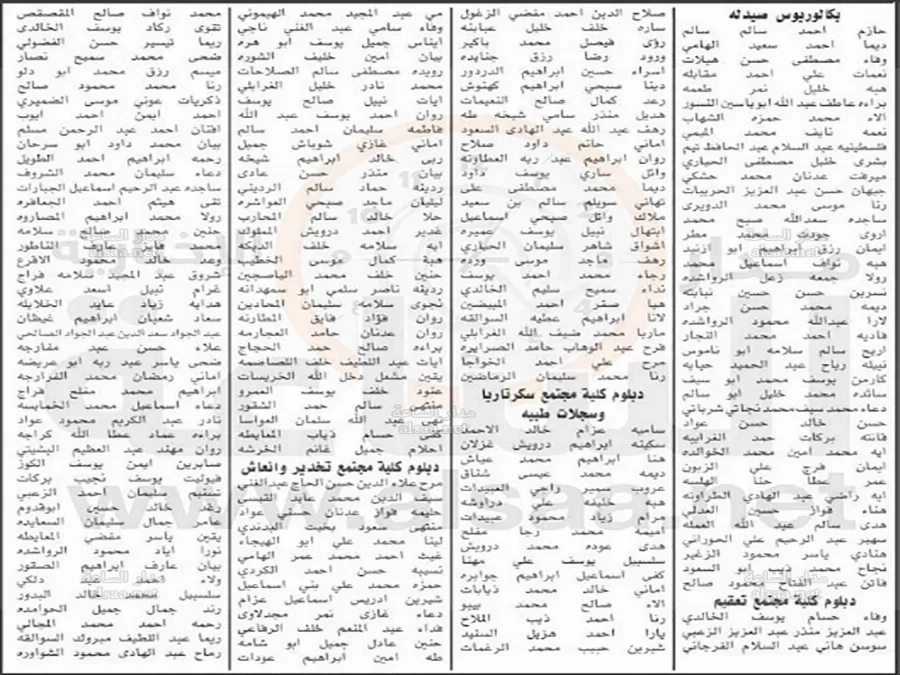 بكالوريوس صيدله
حازم احمد سالم سالم
ديما احمد سعيد الهامي
وفاء مصطفى حسن هيلات
نعمات علي احمد مقابله
هبه خليل نمر طعمه
براءه عاطف عبد الله ابو ياسين النسور
الاء محمد حمزه الشهاب
نعمه نايف محمد
فلسطينيه عبد السلام عبد الحافظ تيم
بشرى خليل مصطفى الحياري
ميرفت عدنان محمد حشكي
جيهان حسن عبد العزيز الحربيات
رنا موسى محمد الدويري
ساجده سعدالله صبح محمد
اروى جودت محمد مطر
ايمان رزق ابراهيم ابو ازنيد
هبه نواف اسماعيل محمد
رولا جمعه زعل الرواشده
نسرين حسن حسين نبابته
ديمه محمد حسن جراد
لارا عبدالله محمود الرواشده
فاديه احمد محمد النجار
اريج سالم سلامه ابو ناموس
نبيله رباح عبد الحميد حيايه
كارمن يوسف محمد ابو سيف
سائده محمد خليل ابو سالم
دعاء محمد سيف محمد نجاتي شرباتي
حسن خالد حسن عواد
فاتنه بركات حمد الغرابيه
ايه امين محمد الخوالده
ايمان فرج علي الزبون
عمر عطا حنا الهلسه
ايه راضي عبد الهادي الطراونه
هناء فواز حسين العدلي
هدى سالم عبد الله العمله
سهير عبد الرحيم علي الحوراني
هنادي ياسر محمود الزغير
نجاح محمد ذيب ابو السعود
فاتن عبد الفتاح محمود صالح
دبلوم كلية مجتمع تعقيم
وفاء حسام يوسف الخالدي
عبد العزيز منذر عبد العزيز الزعبي
سوسن هاني عبد السلام الفرجاني
صلاح الدين احمد مفضي الزغول
ساره خلف خليل عبابنه
رؤى فيصل محمد باكير
ورود رضا رزق جنايده
اسراء حسين ابراهيم الدردور
دينا صبحي ابراهيم كهنوش
رعد كمال صالح النعيمات
هديل منذر سامي شيخه طه
رهف عبد الله عبد الهادي السعود
اماني حاتم داود صلاح
روان ابراهيم عبد ربه العطاونه
وائل ساري يوسف داود
ديما محمد مصطفى علي
تهاني سويلم سالم بن سعيد
ملاك وائل صبحي اسماعيل
ابتهال نبيل يوسف عميره
اشواق شاهر سليمان الحياري
رهف ماجد موسى ورده
رجاء محمد احمد يوسف
نداء سميح سليم الخالدي
هيا صقر احمد المبيضين
لانا ابراهيم عطيه السوالقه
ماريا محمد ضيف الله الغرابلي
فرح عبد الوهاب حامد الصرايره
مرح علي احمد الخواجا
رنا محمد سليمان الرماضين
دبلوم كلية مجتمع سكرتاريا
وسجلات طبيه
ساميه عزام خالد الاحمد
سكينه ابراهيم درويش غزلان
هنا ابراهيم محمد عياش
ديمه محمد عيسى شتاق
عروب سمير راجي العبيدات
هبه خليفه علي دراوشه
مرام زياد محمود عبيدات
اميمه محمد رجا مفلح
هدى عوده محمد درويش
سلسبيل يوسف علي مهنا
كفى اسماعيل ابراهيم جوابره
اماني خالد محمد ذيابات
الاء صالح محمد بيبو
رنا احمد ذيب الملاح
يارا احمد هزيل السنيد
شيرين حبيب محمد الرغمات
مي عبد المجيد محمد الهيموني
وفاء سامي عبد الغني ناجي
ايناس جميل يوسف ابو هره
بيان امين خليف الشوره
رويده مصطفى سالم الصلاحات
محمد نادر خليل الغرابلي
ايات نبيل صالح يوسف
روان احمد يوسف عبد الله
فاطمه سليمان احمد سالم
اماني غازي شوباش جميل
ربى خالد ابراهيم شيخه
بيان منذر حسن عادي
ردينه حماد سالم الرديني
ليليان ماجد صبحي العواشره
حلا خالد سالم المحارب
غدير احمد درويش المملوك
ايه سلامه خلف الديكه
هبة كمال موسى الخطيب
حنين خلف محمد الياسجين
رديفه ناصر سلمي ابو سمهدانه
نجوى سلامه سليمان المحادين
روان فؤاد فايق المطارنه
روان عدنان حامد العجارمه
براءه صالح حمد الحجاج
ايات عبد اللطيف خلف القصاصمه
يقين مشعل دخل الله الخريسات
عنود خلف يوسف العمرو
سالم حمد الشقور
نهى عبد الله سلمان العواسا
كفى حسام ذياب المعايطه
احلام جميل غانم الخرشه
دبلوم كلية مجتمع تخدير وانعاش
مرح علاء الدين حسن الحاج عبدالغني
سيف الدين محمد عايد القيسي
حليمه فواز عدنان حسني عواد
منتهى سعود بخيت البدندي
لينا محمد علي ابو الهيجاء
غيث احمد محمد عمر الهامي
نسيبه حسن احمد الكردي
حمزه محمد علي بني اسماعيل
شيرين ادريس اسماعيل عزام
دعاء غازي نمر مجدلاوي
فداء عبد المنعم خلف الرفاعي
حنين عادل جميل ابو شامه
طه امين ابراهيم عودات
محمد نواف صالح المقصقص
تقوى ركاد يوسف الخالدي
ريما تيسير حسن الفضولي
ضحى محمد سميح نصار
ميسم رزق محمد ابو دلو
رنا محمد محمود صالح
ذكريات عوني موسى الضميري
احمد ايمن احمد ايوب
افنان احمد عبد الرحمن مسلم
بيان محمد داود ابو سرحان
رحمه ابراهيم احمد الطويل
دعاء سليمان محمد الشروف
ساجده عبد الرحيم اسماعيل الجبارات
تقى هيثم احمد الجعافره
رولا محمد ابراهيم المصاروه
حنين محمد صالح سلامه
محمد فايز عارف الناطور
وعد خالد محمود الاقرع
شروق عبد المجيد سلامه فراج
غرام نبيل اسعد علاوي
هدايه زياد عايد الخلايله
سعاد شعبان ابراهيم غيظان
عبد الجواد سعد الدين عبد الجواد الصالحي
علاء حسن عيد مفارجه
ضحى ياسر عبد ربه ابو عريضه
اماني رمضان محمد الفرارجه
محمد احمد مفلح فراج
دعاء اسماعيل محمد الخمايسه
نادر عبد الكريم محمود عواد
براءه عماد عطا الله كراجه
روان مهند عبد العظيم البشيتي
صابرين ايمن يوسف الكوز
فيوليت يوسف نجيب بركات
تسنيم سليمان احمد الزعبي
رغد خالد حسين ابوقدوم
عامر جمال سليمان السعايده
يقين ياسر مفضي المعايطه
نورا اياد محمود الرواشده
بيان عارف ابراهيم الصقور
ولاء احمد عيد دلكي
سلسبيل محمد خالد البدور
رند جمال جميل الحوامده
رحمه احمد محمد المجالي
ريما عبد اللطيف مبروك السوالقه
رماح عبد الهادي محمود الشواوره
www.alsaa.net